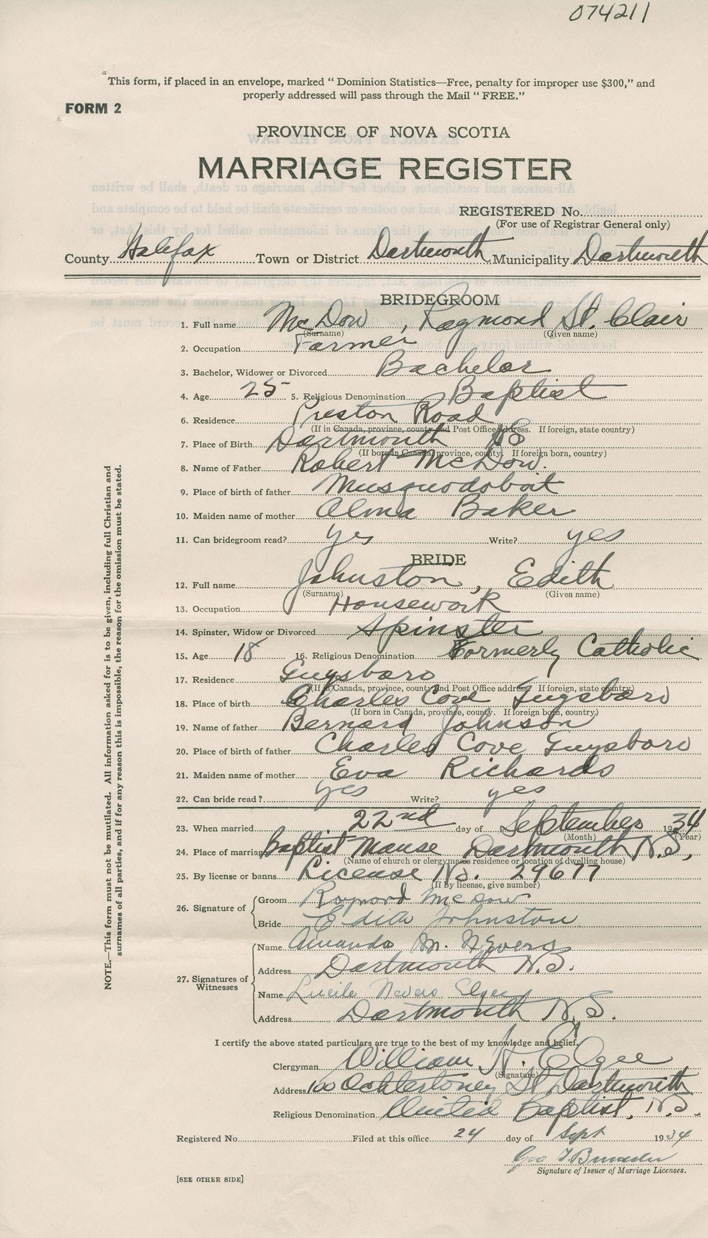 074211
This form, if placed in an envelope, marked “ Dominion Statistics—Free, penalty for improper use $300,” and
properly addressed will pass through the Mail “ FREE.”
FORM 2
PROVINCE OF NOVA SCOTIA
MARRIAGE REGISTER
REGISTERED No.
(For use of Registrar General only)
County Halifax Town or District Dartmouth Municipality Dartmouth
BRIDEGROOM
1. Full name McDow , Raymond St. Clair
(Surname) (Given name)
2. Occupation Farmer
3. Bachelor, Widower or Divorced Bachelor
4. Age 25 5. Religious Denomination Baptist
6. Residence Preston Road
(If in Canada, province, county and Post Office address. If foreign, state country)
7. Place of Birth Dartmouth NS
(If born in Canada, province, county. If foreign born, country)
8. Name of Father Robert McDow.
9. Place of birth of father Musquodoboit
10. Maiden name of mother Alma Baker
11. Can bridegroom read? yes Write? yes
BRIDE
12. Full name Johnston , Edith
(Surname) (Given name)
13. Occupation Housework
14. Spinster, Widow or Divorced Spinster
15. Age 18 16. Religious Denomination Formerly Catholic
17. Residence Guysboro
(If in Canada, province, county and Post Office address. If foreign, state country)
18. Place of birth Charles Cove Guysboro
(If born in Canada, province, county. If foreign born, country)
19. Name of father Bernard Johnson
20. Place of birth of father Charles Cove Guysboro
21. Maiden name of mother Eva Richards
22. Can bride read? yes Write? yes
23. When married 22nd day of September 1934
(Month) (Year)
24. Place of marriage Baptist Manse Dartmouth N.S,
(Name of church or clergymans residence or location of dwelling house)
25. By license or banns License No. 29677
(If by license, give number)
26. Signature of
Groom Raymond McDow
Bride Edith Johnston
27. Signatures of Witnesses
Name Amanda M. Nevers
Address Dartmouth N.S.
Name Lucile Nevers Elgee
Address Dartmouth N.S.
I certify the above stated particulars are true to the best of my knowledge and belief.
Clergyman William H. Elgee
(Signature)
Address 100 St. Dartmouth
Religious Denomination United Baptist, N.S.
Registered No. Filed at this office 24 day of Sept 1934
Geo
Signature of Issuer of Marriage Licenses.
[SEE OTHER SIDE]
NOTE.—This form must not be mutilated. All information asked for is to be given, including full Christian and
surnames of all parties, and if for any reason this is impossible, the reason for the omission must be stated.